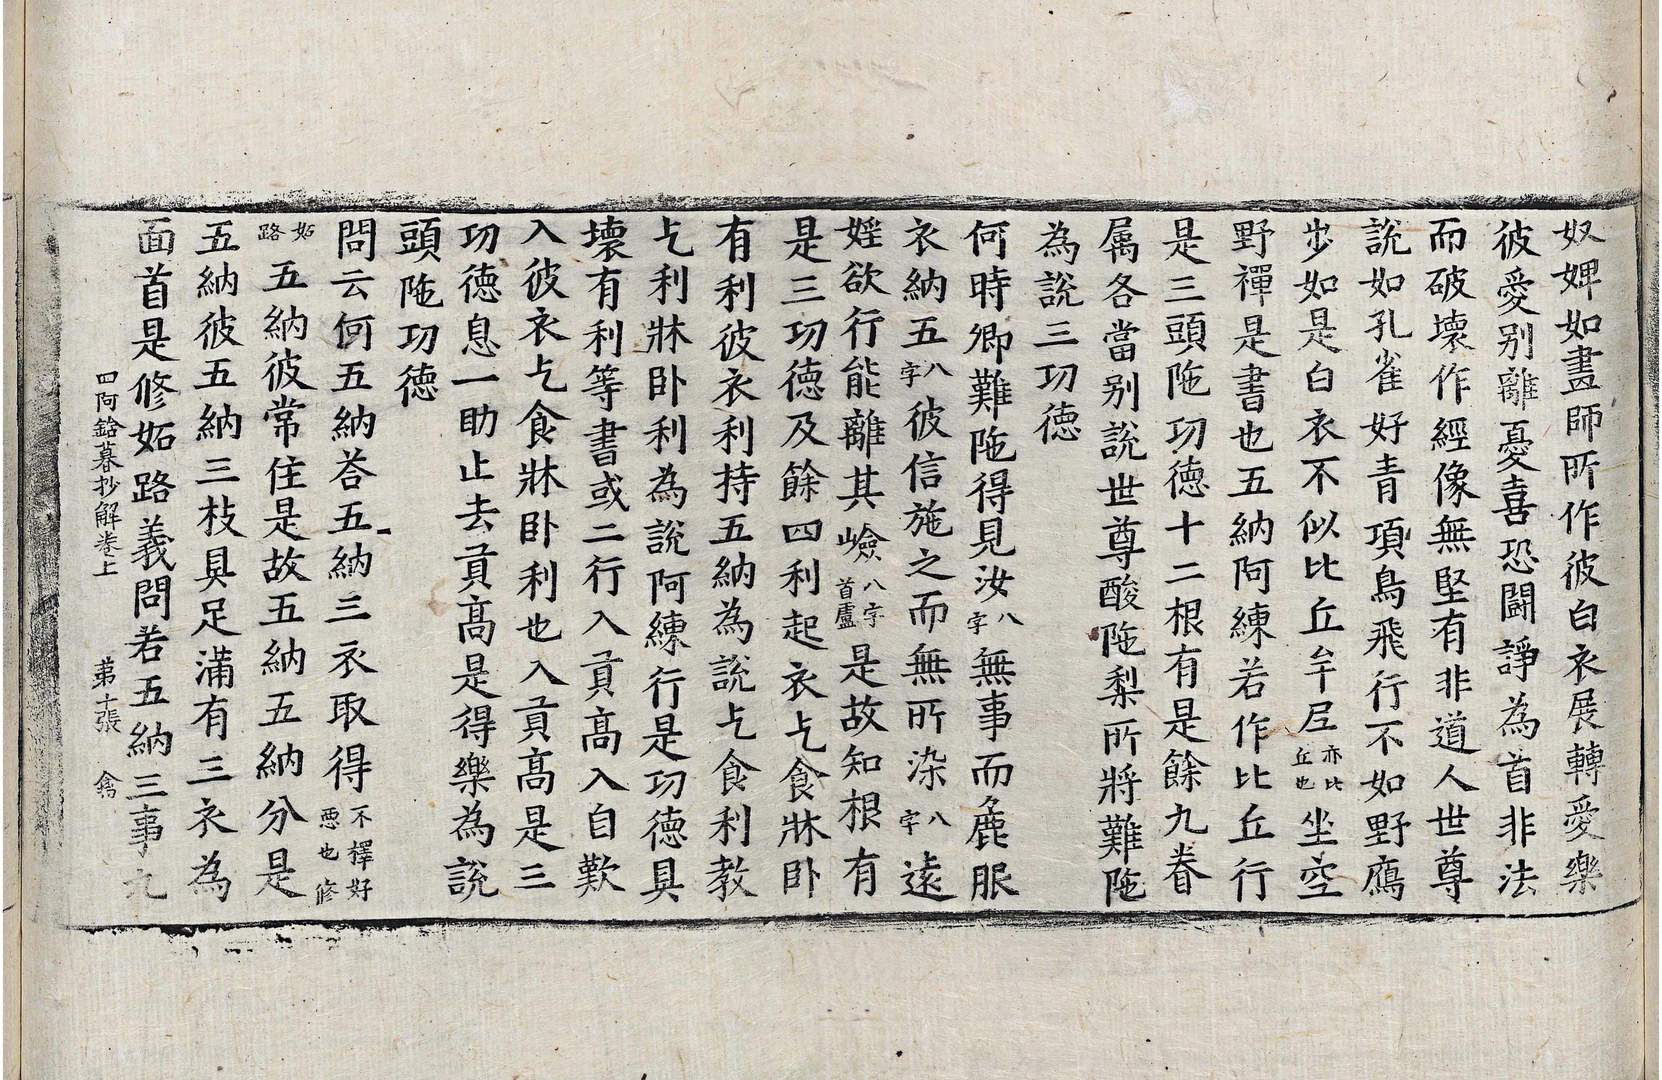 奴婢如畫師所作彼白衣展轉愛樂
彼愛别離憂喜恐鬪諍為首非法
而破壞作經像無堅有非道人世尊
說如孔雀好青項鳥飛行不如野鴈
步如是白衣不似比丘牟尼亦比丘也坐空
野禪是書也五納阿練若作比丘行
是三頭陁功德十二根有是餘九眷
属各當别說世尊酸陁梨所將難陁
為說三功德
何時卿難陁得見汝八字無事而麁服
衣納五八字彼信施之而無所染八字遠
婬欲行能離其嶮八字首盧是故知根有
是三功德及餘四利起衣乞食牀卧
有利彼衣利持五納為說乞食利教
乞利牀卧利為說阿練行是功德具
壞有利等書或二行入貢高入自歎
入彼衣乞食牀卧利也入貢高是三
功德息一助止去貢高是得樂為說
頭陁功德
問云何五納荅五納三衣取得不擇好惡也修
妬路五納彼常住是故五納五納分是
五納彼五納三枝具足滿有三衣為
面首是修妬路義問若五納三事九
四阿鋡暮抄解卷上 苐十張